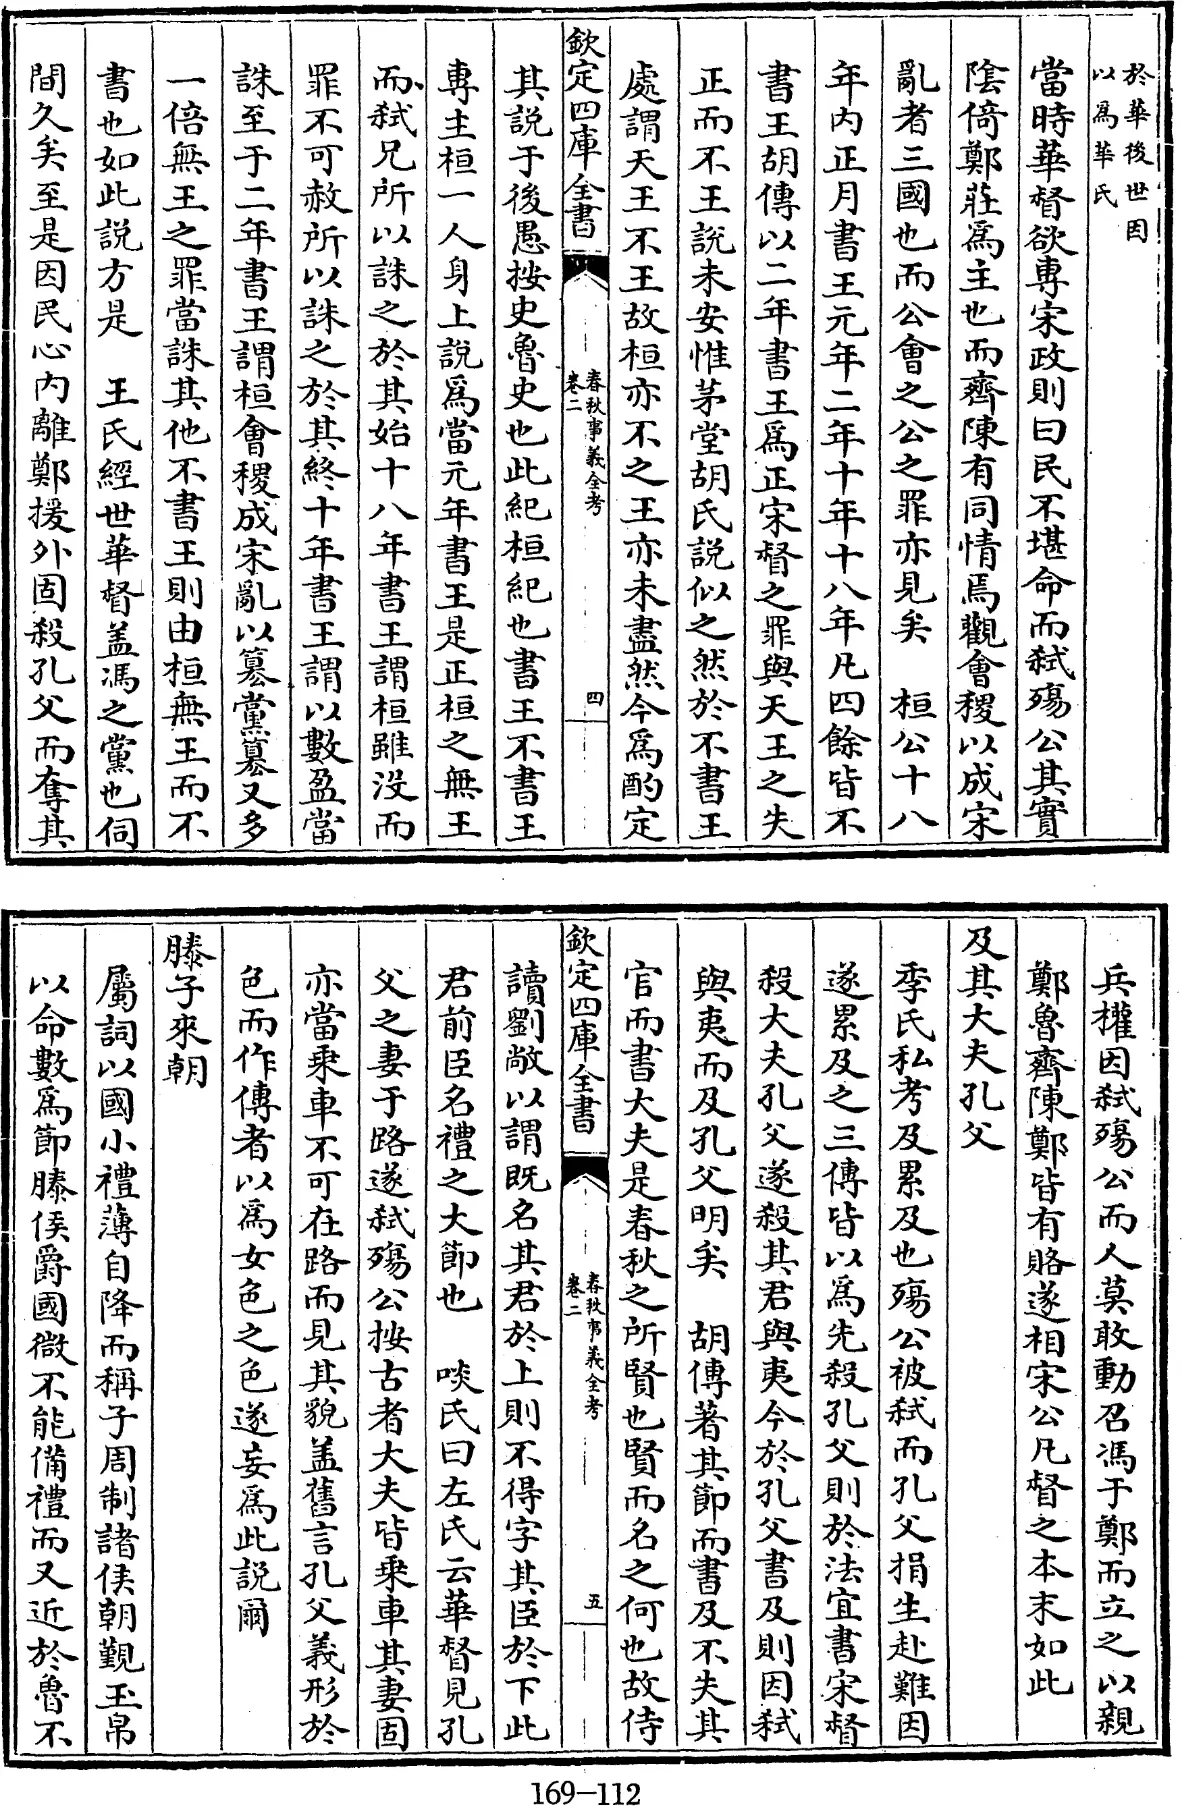 於華後世因
以爲華氏
當時華督欲專宋政則曰民不堪命而弑殤公其實
陰倚鄭莊爲主也而齊陳有同情焉觀會稷以成宋
亂者三國也而公會之公之罪亦見矣　桓公十八
年内正月書王元年二年十年十八年凡四餘皆不
書王胡傳以二年書王爲正宋督之罪與天王之失
正而不王説未安惟茅堂胡氏説似之然於不書王
處謂天王不王故桓亦不之王亦未盡然今爲酌定
欽定四庫全書
春秋事義全考
卷二
四
其説于後愚按史魯史也此紀桓紀也書王不書王
專主桓一人身上説爲當元年書王是正桓之無王
而弑兄所以誅之於其始十八年書王謂桓雖没而
罪不可赦所以誅之於其終十年書王謂以數盈當
誅至于二年書王謂桓會稷成宋亂以篡黨篡又多
一倍無王之罪當誅其他不書王則由桓無王而不
書也如此説方是　王氏經世華督盖馮之黨也伺
間久矣至是因民心内離鄭援外固殺孔父而奪其
兵權因弑殤公而人莫敢動召馮于鄭而立之以親
鄭魯齊陳鄭皆有賂遂相宋公凡督之本末如此
及其大夫孔父
季氏私考及累及也殤公被弑而孔父捐生赴難因
遂累及之三傳皆以爲先殺孔父則於法宜書宋督
殺大夫孔父遂殺其君與夷今於孔父書及則因弑
與夷而及孔父明矣　胡傳著其節而書及不失其
官而書大夫是春秋之所賢也賢而名之何也故侍
欽定四庫全書
春秋事義全考
卷二
五
讀劉敞以謂既名其君於上則不得字其臣於下此
君前臣名禮之大節也　啖氏曰左氏云華督見孔
父之妻于路遂弑殤公按古者大夫皆乗車其妻固
亦當乗車不可在路而見其貌盖舊言孔父義形於
色而作傳者以爲女色之色遂妄爲此説爾
滕子來朝
屬詞以國小禮薄自降而稱子周制諸侯朝覲玉帛
以命數爲節滕侯爵國微不能備禮而又近於魯不
169-112